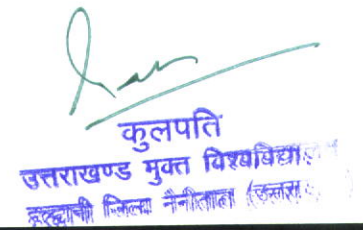 कुलपति
उत्तराखण्ड मुक्त विश्वविद्या
हल्द्वानी जिला नैनीताल